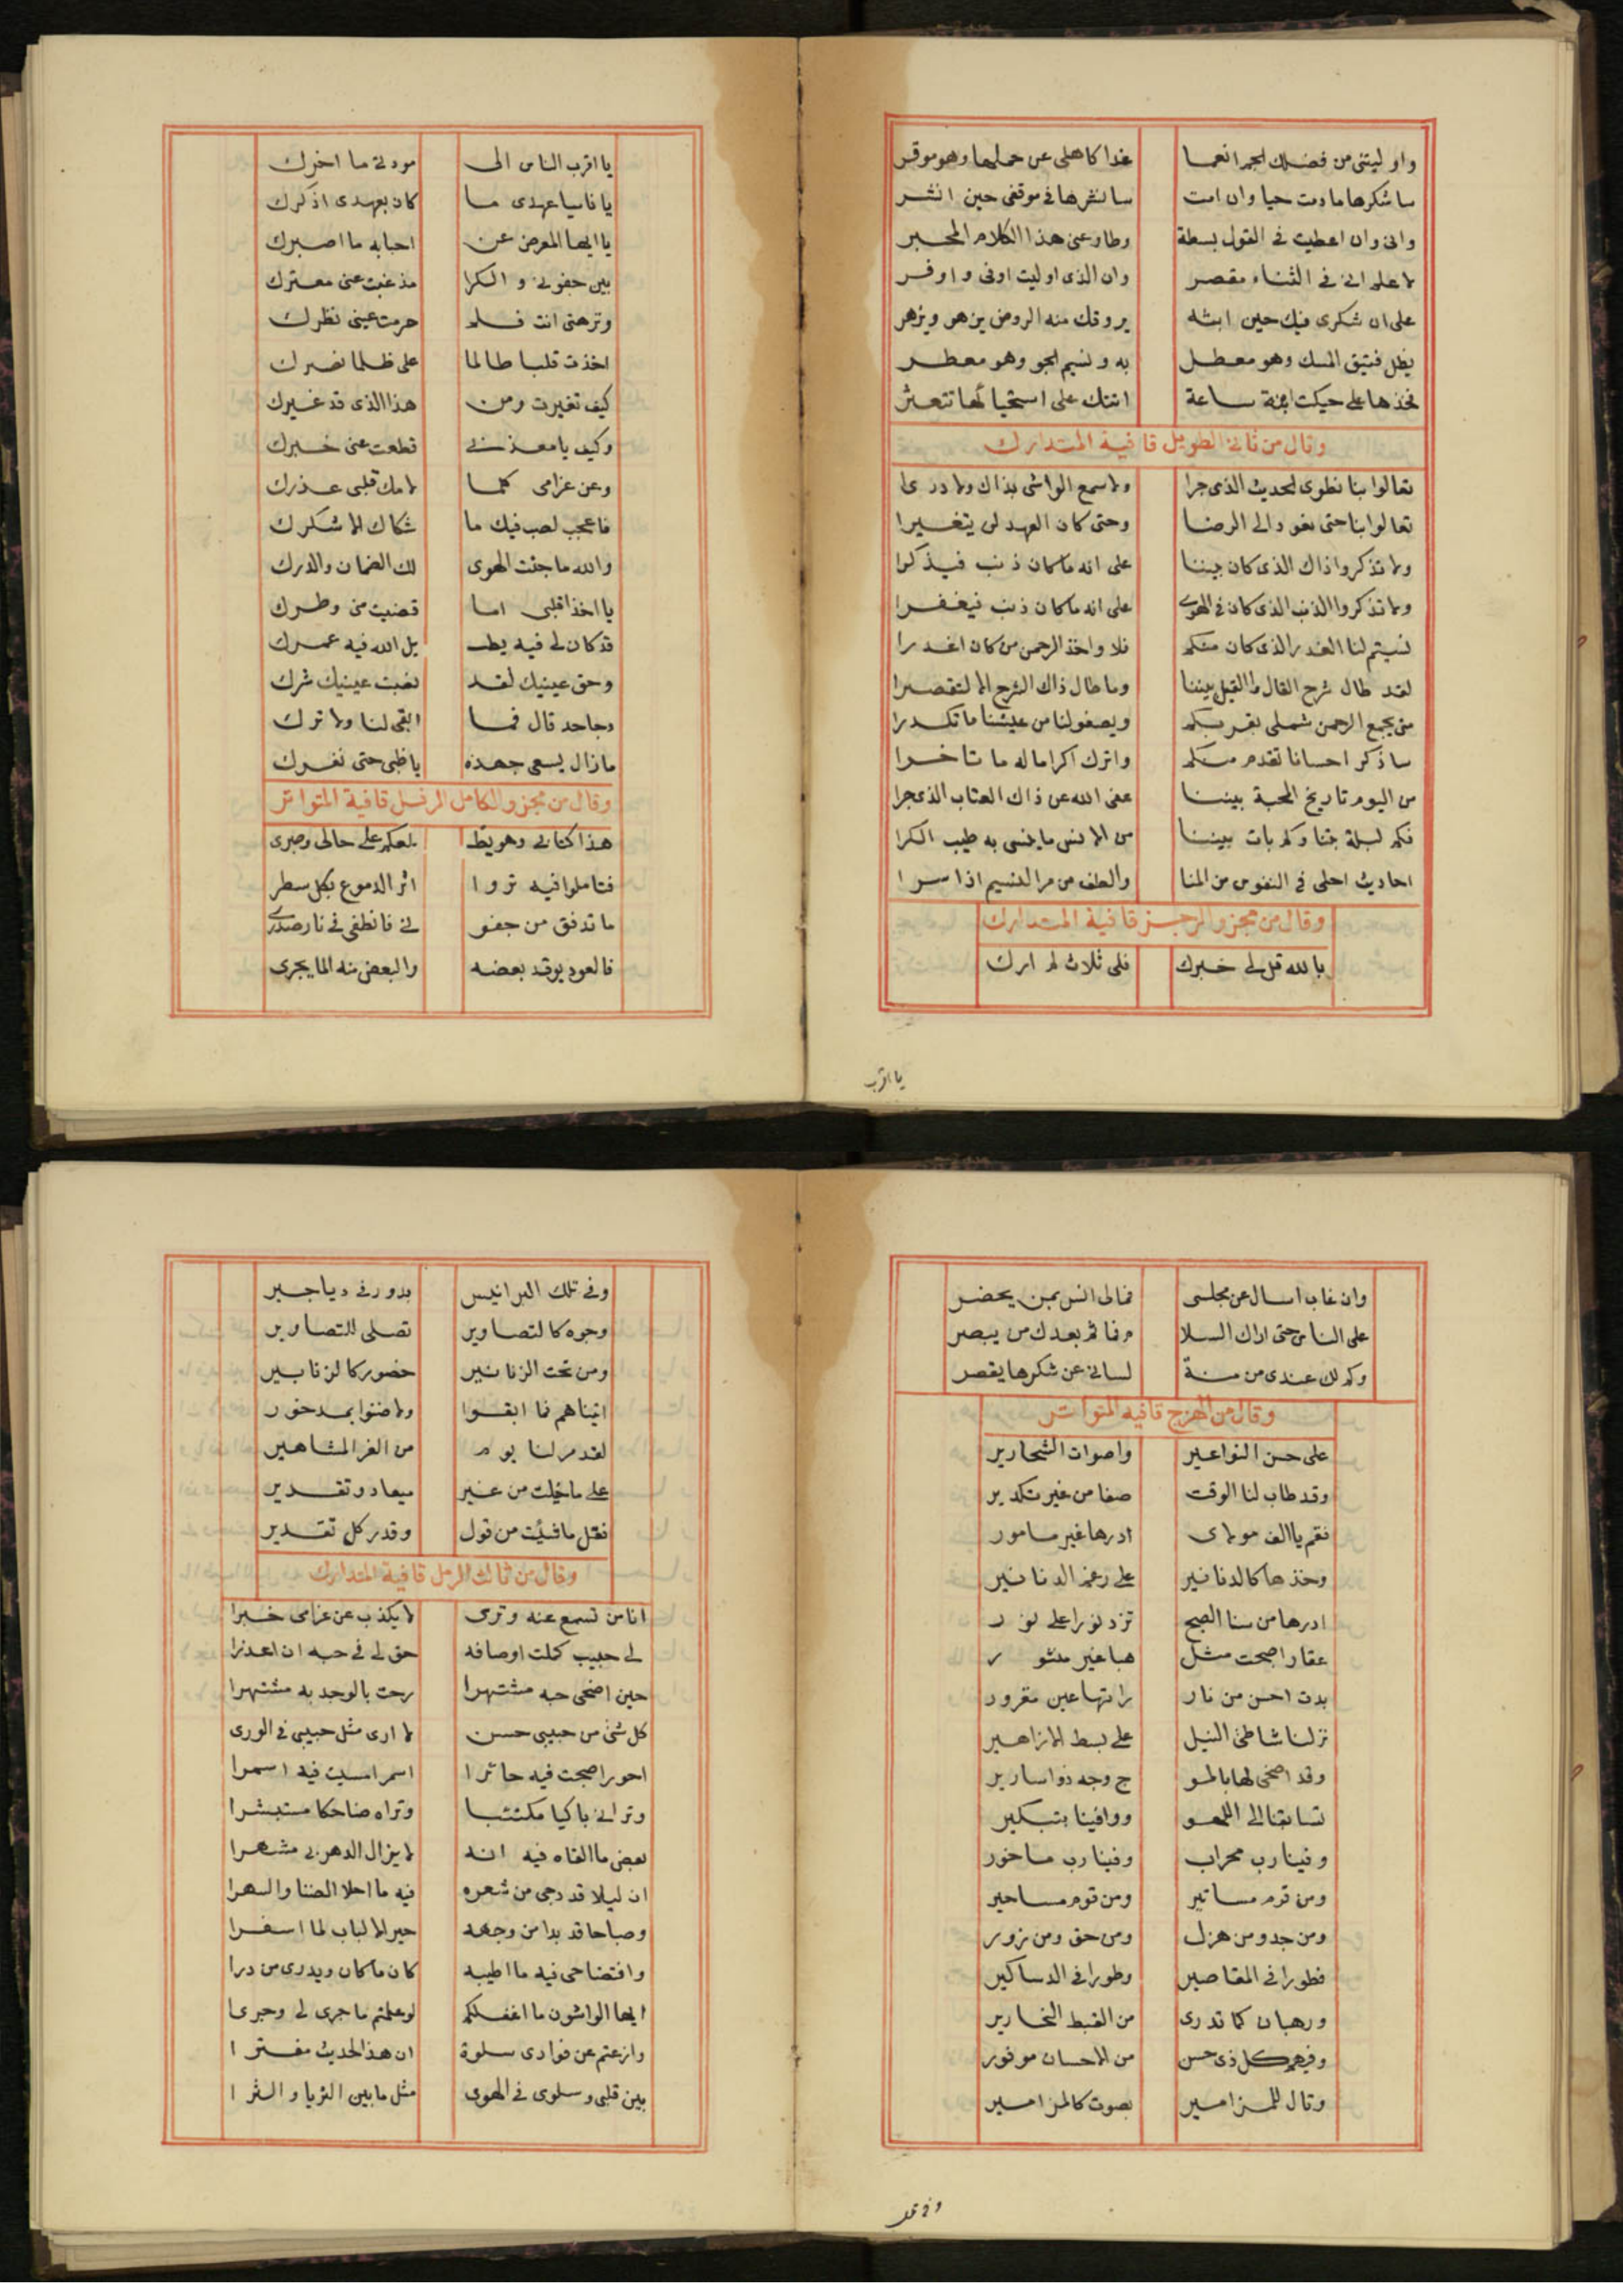 واوليتنى من فضلك الجم انعما غدا كاهلى عن حملها وهو موقر
ساشكرها ما دمت حيا وان امت سانشرها فى موقفى حين انشر
وانى وان اعطيت فى القول بسطة وطاوعنى هذا الكلام المحبر
لاعلم انى فى الثناء مقصر وان الذى اوليت اوفى واوفر
على ان شكرى فيك حين ابثه يروقك منه الروض يزهو ويزهر
يظل فتيق المسك وهو معطل به ونسيم الجو وهو معطر
فخذها على حيكت ابنة ساعة اتتك على استحيائها تتعثر
وقال من ثانى الطويل قافية المتدارك
تعالوا بنا نطوى الحديث الذى جرا ولا سمع الواشى بذاك ولا درى
تعالوا بنا حتى نعود الى الرضا وحتى كان العهد لن يتغيرا
ولا تذكروا ذاك الذى كان بيننا على انه ما كان ذنب فيذكرا
ولا تذكروا الذنب الذى كان فى الهوى على انه ما كان ذنب فيغفرا
نسيتم لنا الغدر الذى كان منكم فلا واخذ الرحمن من كان اغدرا
لقد طال شرح القال والقيل بيننا وما طال ذاك الشرح الا لتقصرا
متى يجمع الرحمن شملى بقربكم ويصفو لنا من عيشنا ما تكدرا
ساذكر احسانا تقدم منكم واترك اكراما له ما تاخرا
من اليوم تاريخ المحبة بيننا عفى الله عن ذاك العتاب الذى جرا
فكم ليلة بتنا وكم بات بيننا من الانس ما ينسى به طيب الكرا
احاديث احلى فى النفوس من المنا والطف من مر النسيم اذا سرا
وقال من مجزو الرجز قافية المتدارك
بالله قل لى خبرك فلى ثلاث لم ارك
يا اقرب
يا اقرب الناس الى مودتى ما اخرك
يا ناسيا عهدى ما كان بعهدى اذكرك
يا ايها المعرض عن احبابه ما اصبرك
بين جفونى والكرا مذ غبت عنى معترك
ونزهتى انت فلم حرمت عينى نظرك
اخذت قلبا طالما على ظلما نصرك
كيف تغيرت ومن هذا الذى قد غيرك
وكيف يا معذبى قطعت عنى خبرك
وعن غرامى كلما لامك قلبى عذرك
فاعجب لصب فيك ما شكاك الا شكرك
والله ما جئت الهوى لك الضمان والدرك
يا اخذا قلبى اما قضيت من وطرك
قد كان لى فيه يطـ يل الله فيه عمرك
وحق عينيك لقد نصبت عينيك شرك
وحاحد قال فما ابقى لنا ولا ترك
ما زال يسعى جهده يا ظبى حتى نفرك
وقال من مجزو الكامل المرفل قافية المتواتر
هذا كتابى وهو يطـ لعكم على حالى وصبرى
فتاملوا فيه تروا اثر الدموع بكل سطر
ما تدفق من جفو نى فانطفى فى نار صدرى
فالعود يوقد بعضه والبعض منه الما يجرى
وان غاب اسال عن مجلسى فما لى انس بمن يحضر
على الناس حتى اراك السلا م فما ثم بعدك من يبصر
وكم لك عندى من منة لسانى عن شكرها يقصر
وقال من الهزج قافيه المتواتر
على حسن النواعير واصوات الشحارير
وقد طاب لنا الوقت صفا من غير تكدير
فقم يا الف مولاى ادرها غير مامور
وخذها كالدنانير على رغم الدنانير
ادرها من سنا الصبح تزد نورا على نور
عقارا اصبحت مثل هبا غير منثور
بدت احسن من نار راتها عين مقرور
نزلنا شاطئ النيل على بسط الازاهير
وقد اضحى لها بالمو ج وجه ذو اسارير
تسابقنا الى اللهو ووافينا بتبكير
وفينا رب محراب وفينا رب ماخور
ومن قوم مساتير ومن قوم مساحير
ومن جد ومن هزل ومن حق ومن زور
فطورا فى المقاصير وطورا فى الدساكير
ورهبان كما تدرى من القبط النحارير
وفيهم كل ذى حسن من الاحسان موفور
وتال للمزامير بصوت كالمزامير
وفى تلك
وفى تلك البرانيس بدور فى دياجير
وجوه كالتصاوير تصلى للتصاوير
ومن تحت الزنانير خصور كالزنابير
اتيناهم فما ابقوا ولا ضنوا بمدخور
لقد مر لنا يوم من الغر المشاهير
على ما خيلت من غير ميعاد وتقدير
فقل ما شيئت من قول وقدر كل تقدير
وقال من ثالث الرمل قافية المتدارك
انا من تسمع عنه وترى لا يكذب عن غرامى خبرا
لى حبيب كملت اوصافه حق لى فى حبه ان اعذرا
حين اضحى حبه مشتهرا رحت بالوجد به مشتهرا
كل شئ من حبيبى حسن لا ارى مثل حبيبى فى الورى
احورا اصبحت فيه حائرا اسمر امسيت فيه اسمرا
وترانى باكيا مكتئبا وتراه ضاحكا مستبشرا
بعض ما القاه فيه انه لا يزال الدهر بى مشهرا
ان ليلا قد دجى من شعره فيه ما احلا الضنا والسهرا
وصباحا قد بدا من وجهه حير الالباب لما اسفرا
وافتضاحى فيه ما اطيبه كان ما كان ويدرى من درا
ايها الواشون ما اغفلكم لو علمتم ما جرى لى وجرى
وازعتم عن فوادى سلوة ان هذا الحديث مفترا
بين قلبى وسلوى فى الهوى مثل ما بين الثريا والثرا